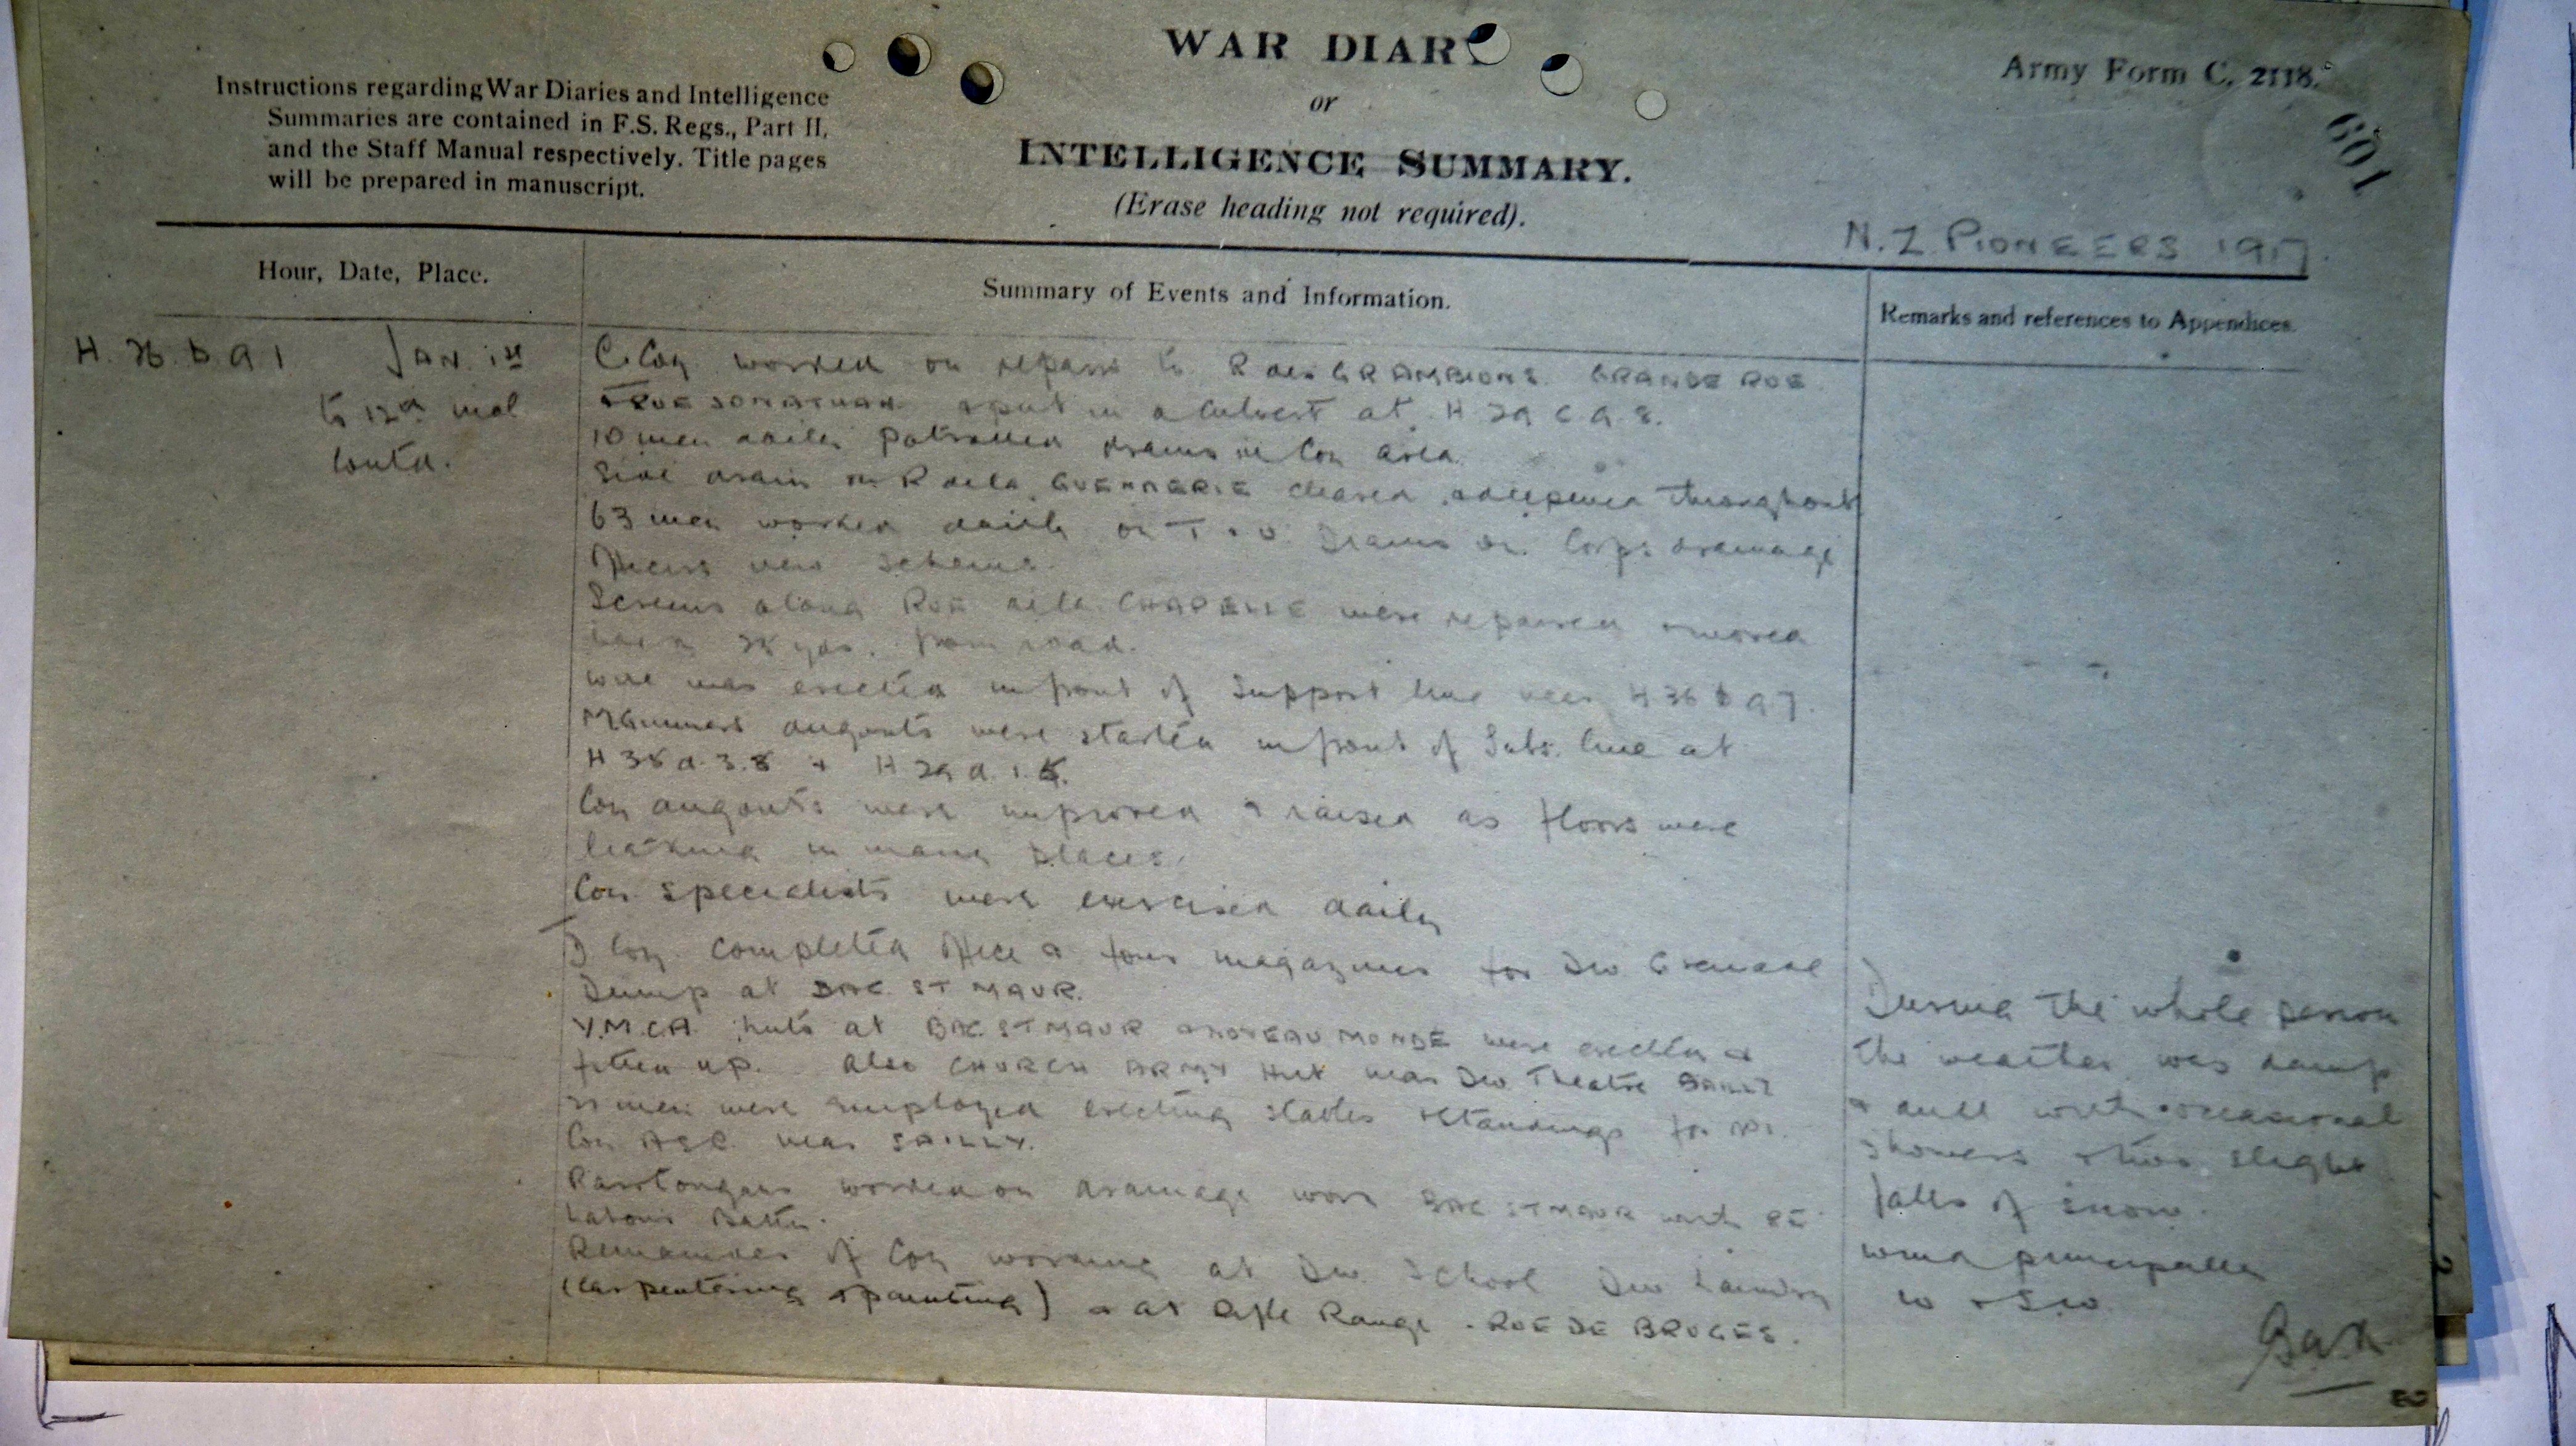 WAR DIARY
or
INTELLIGENCE SUMMARY.
(Erase heading not required).
Instructions regarding War Diaries and Intelligence
Summaries are contained in F.S. Regs., Part II,
and the Staff Manual respectively. Title pages
will be prepared in manuscript.
Army Form C. 2118.
601
N.Z PIONEERS 1917
Hour, Date, Place.
Summary of Events and Information.
Remarks and references to Appendices.
H. 36. b 9 1 JAN. 1st
to 12th incl
Contd.
C. Coy worked on repairs to R des GRAMBIONS. GRANDE RUE
+ RUE & put in a culvert at H 29 c 9.8.
10 men daily patrolled drains in Coy area
Side drain on R de la cleared & deepened throughout
63 men worked daily on T & U Drains on Corps drainage
Officers new scheme.
Screens along RUE de la CHAPELLE were repaired & moved
back yds. from road.
Wire was erected in front of Support line near H 36 b 9 7.
M Gunners dugouts were started in front of Subs. line at
H 35 d. 3.8 + H 29 d. 1.5.
Coy dugouts were improved & raised as floors were
leaking in many places.
Coy specialists were exercised daily
D Coy. completed office & four magazines for Div Grenade
Dump at BAC ST MAUR.
Y.M.C.A. huts at BAC ST MAUR & NOVEAU MONDE were erected &
fitted up. Also CHURCH ARMY Hut near Div. Theatre SAILLY
men were employed erecting stables & standings for No 1.
Coy ASC. near SAILLY.
Rarotongans worked on drainage work BAC ST MAUR with RE
Labour Battn.
Remainder of Coy working at Div. School Div Laundry
(carpentering & painting) & at Rifle Range - RUE DE BRUGES.
During the whole period
the weather was damp
& dull with occasional
showers & two slight
falls of snow.
Wind principally
W & S.W